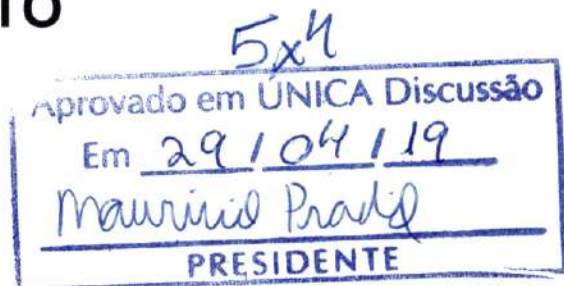 TO
5x4
Aprovado em ÚNICA Discussão
Em 29/04/19
Mauricio Prado
PRESIDENTE